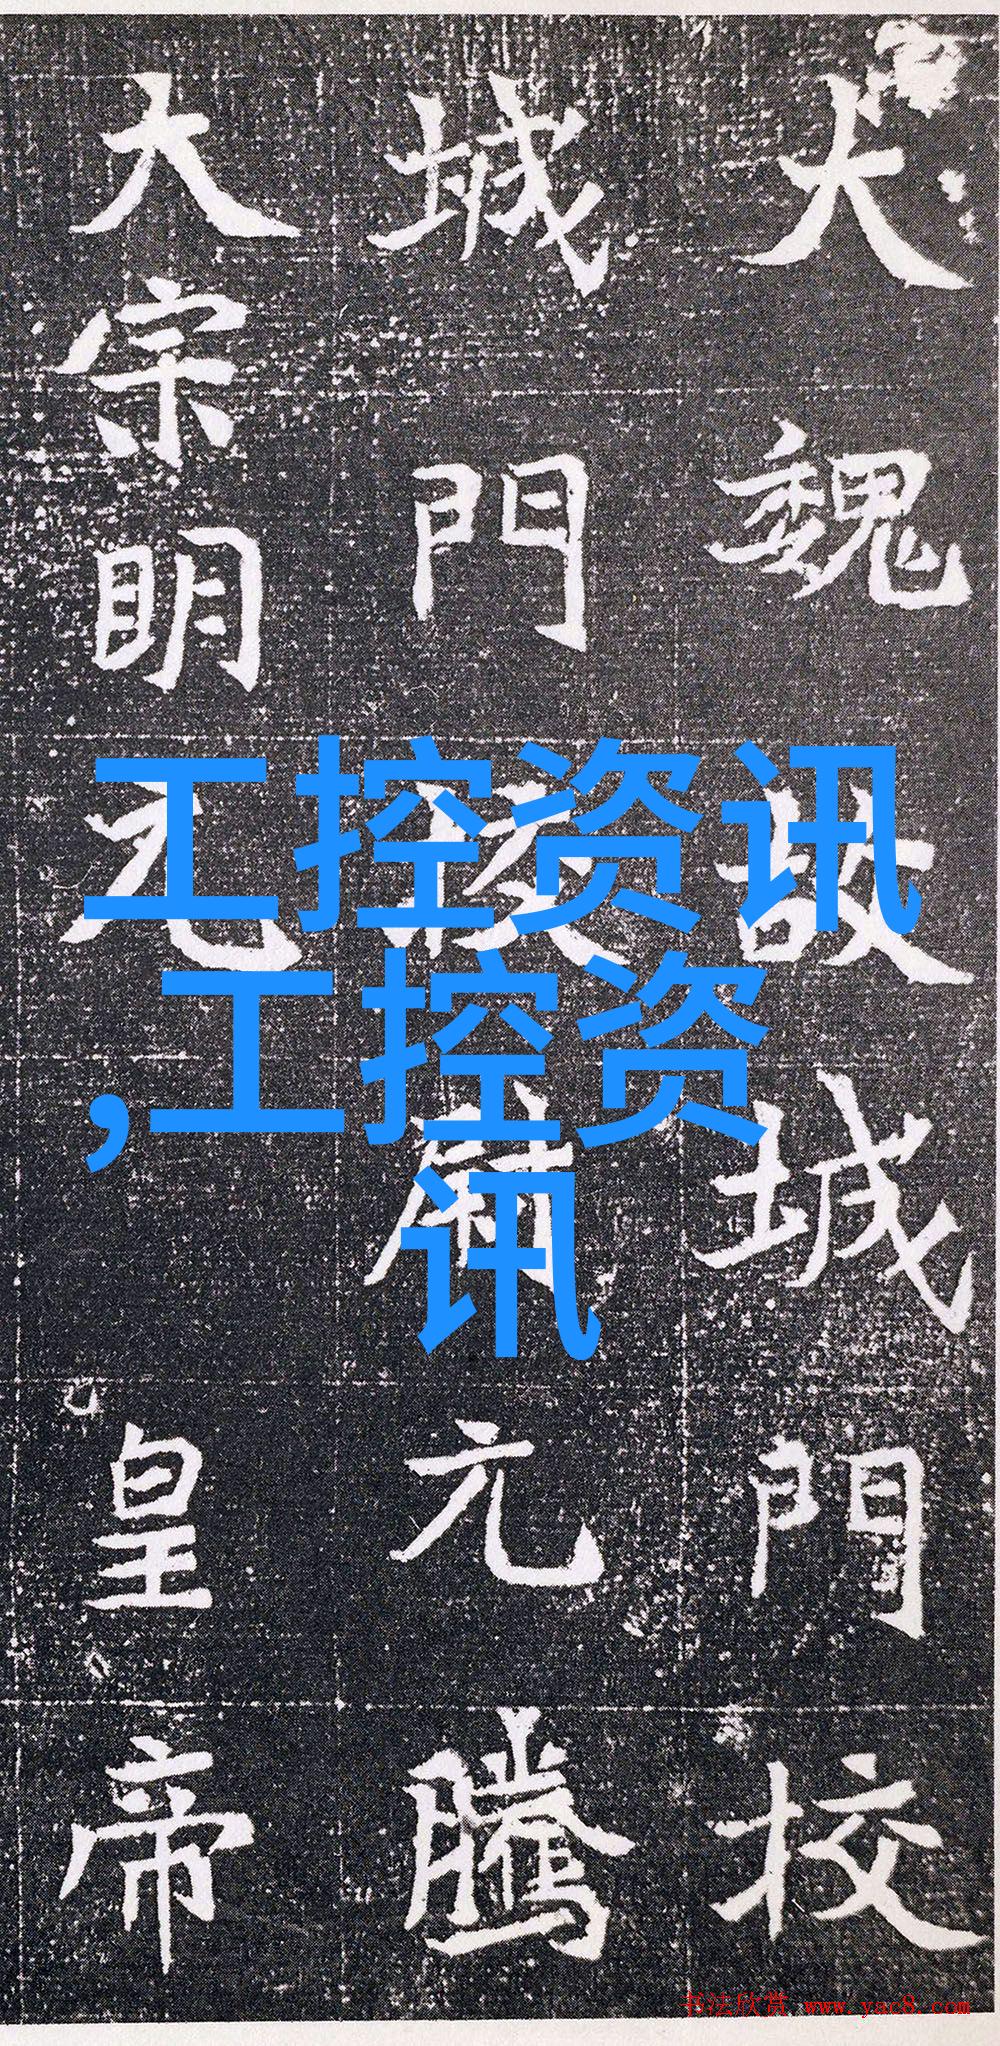 大魏故城門校
城門校尉元騰
大宗明元皇帝
工控资讯
,工控资
讯
书法欣赏 www.yac8.com